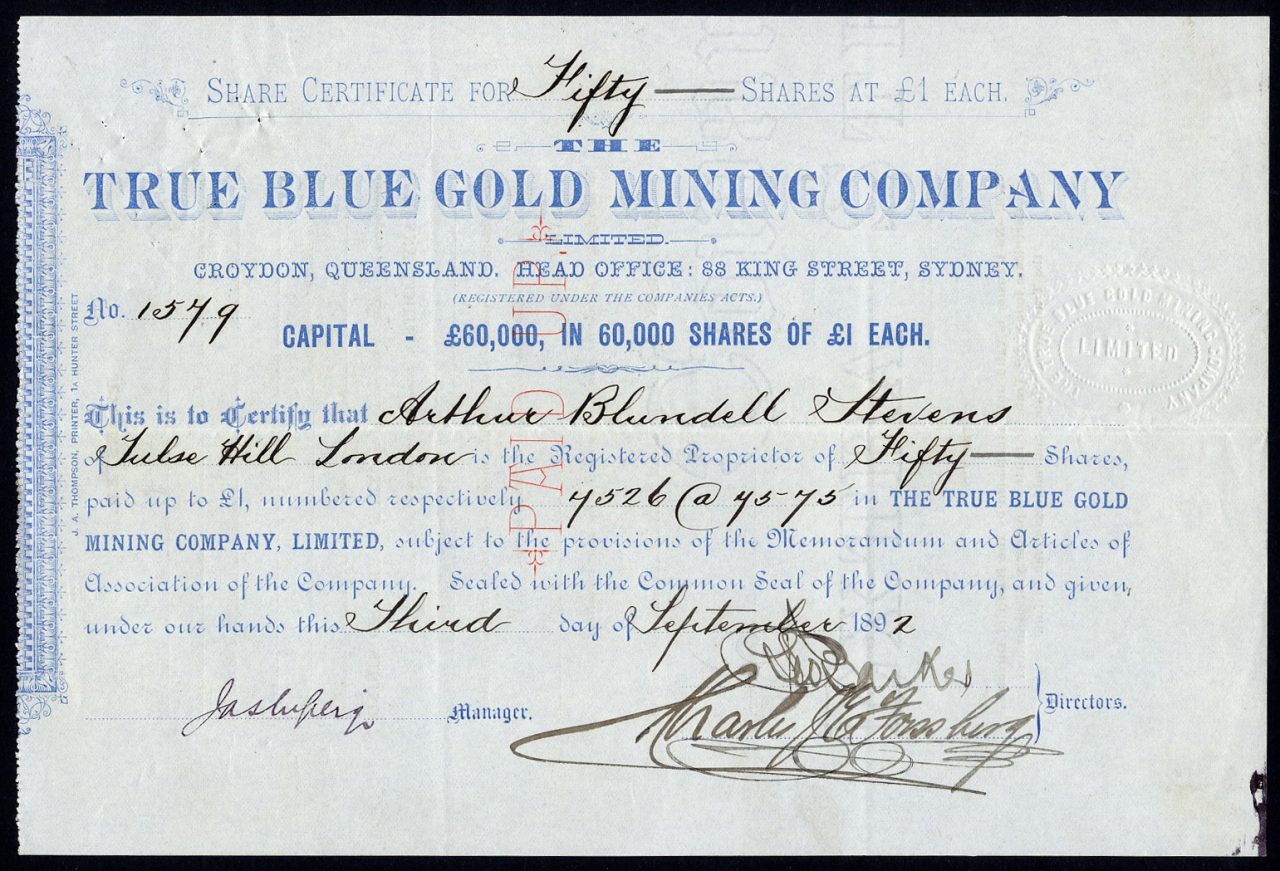 SHARE CERTIFICATE FOR Fifty — SHARES AT £1 EACH.
THE
TRUE BLUE GOLD MINING COMPANY
LIMITED.
CROYDON, QUEENSLAND. HEAD OFFICE: 88 KING STREET, SYDNEY.
(REGISTERED UNDER THE COMPANIES ACTS.)
No. 1579
CAPITAL - £60,000, IN 60,000 SHARES OF £1 EACH.
This is to Certify that Arthur Blundell Stevens
of Tulse Hill London is the Registered Proprietor of Fifty — Shares,
paid up to £1, numbered respectively 7526 @ 75-75 in THE TRUE BLUE GOLD
MINING COMPANY, LIMITED, subject to the provisions of the Memorandum and Articles of
Association of the Company. Sealed with the Common Seal of the Company, and given,
under our hands this Third day of September 1892
Geo Barker
Manager.
Charles Forssberg
Directors.
PAID UP.
J. A. THOMPSON, PRINTER, 1A HUNTER STREET
THE TRUE BLUE GOLD MINING COMPANY
LIMITED